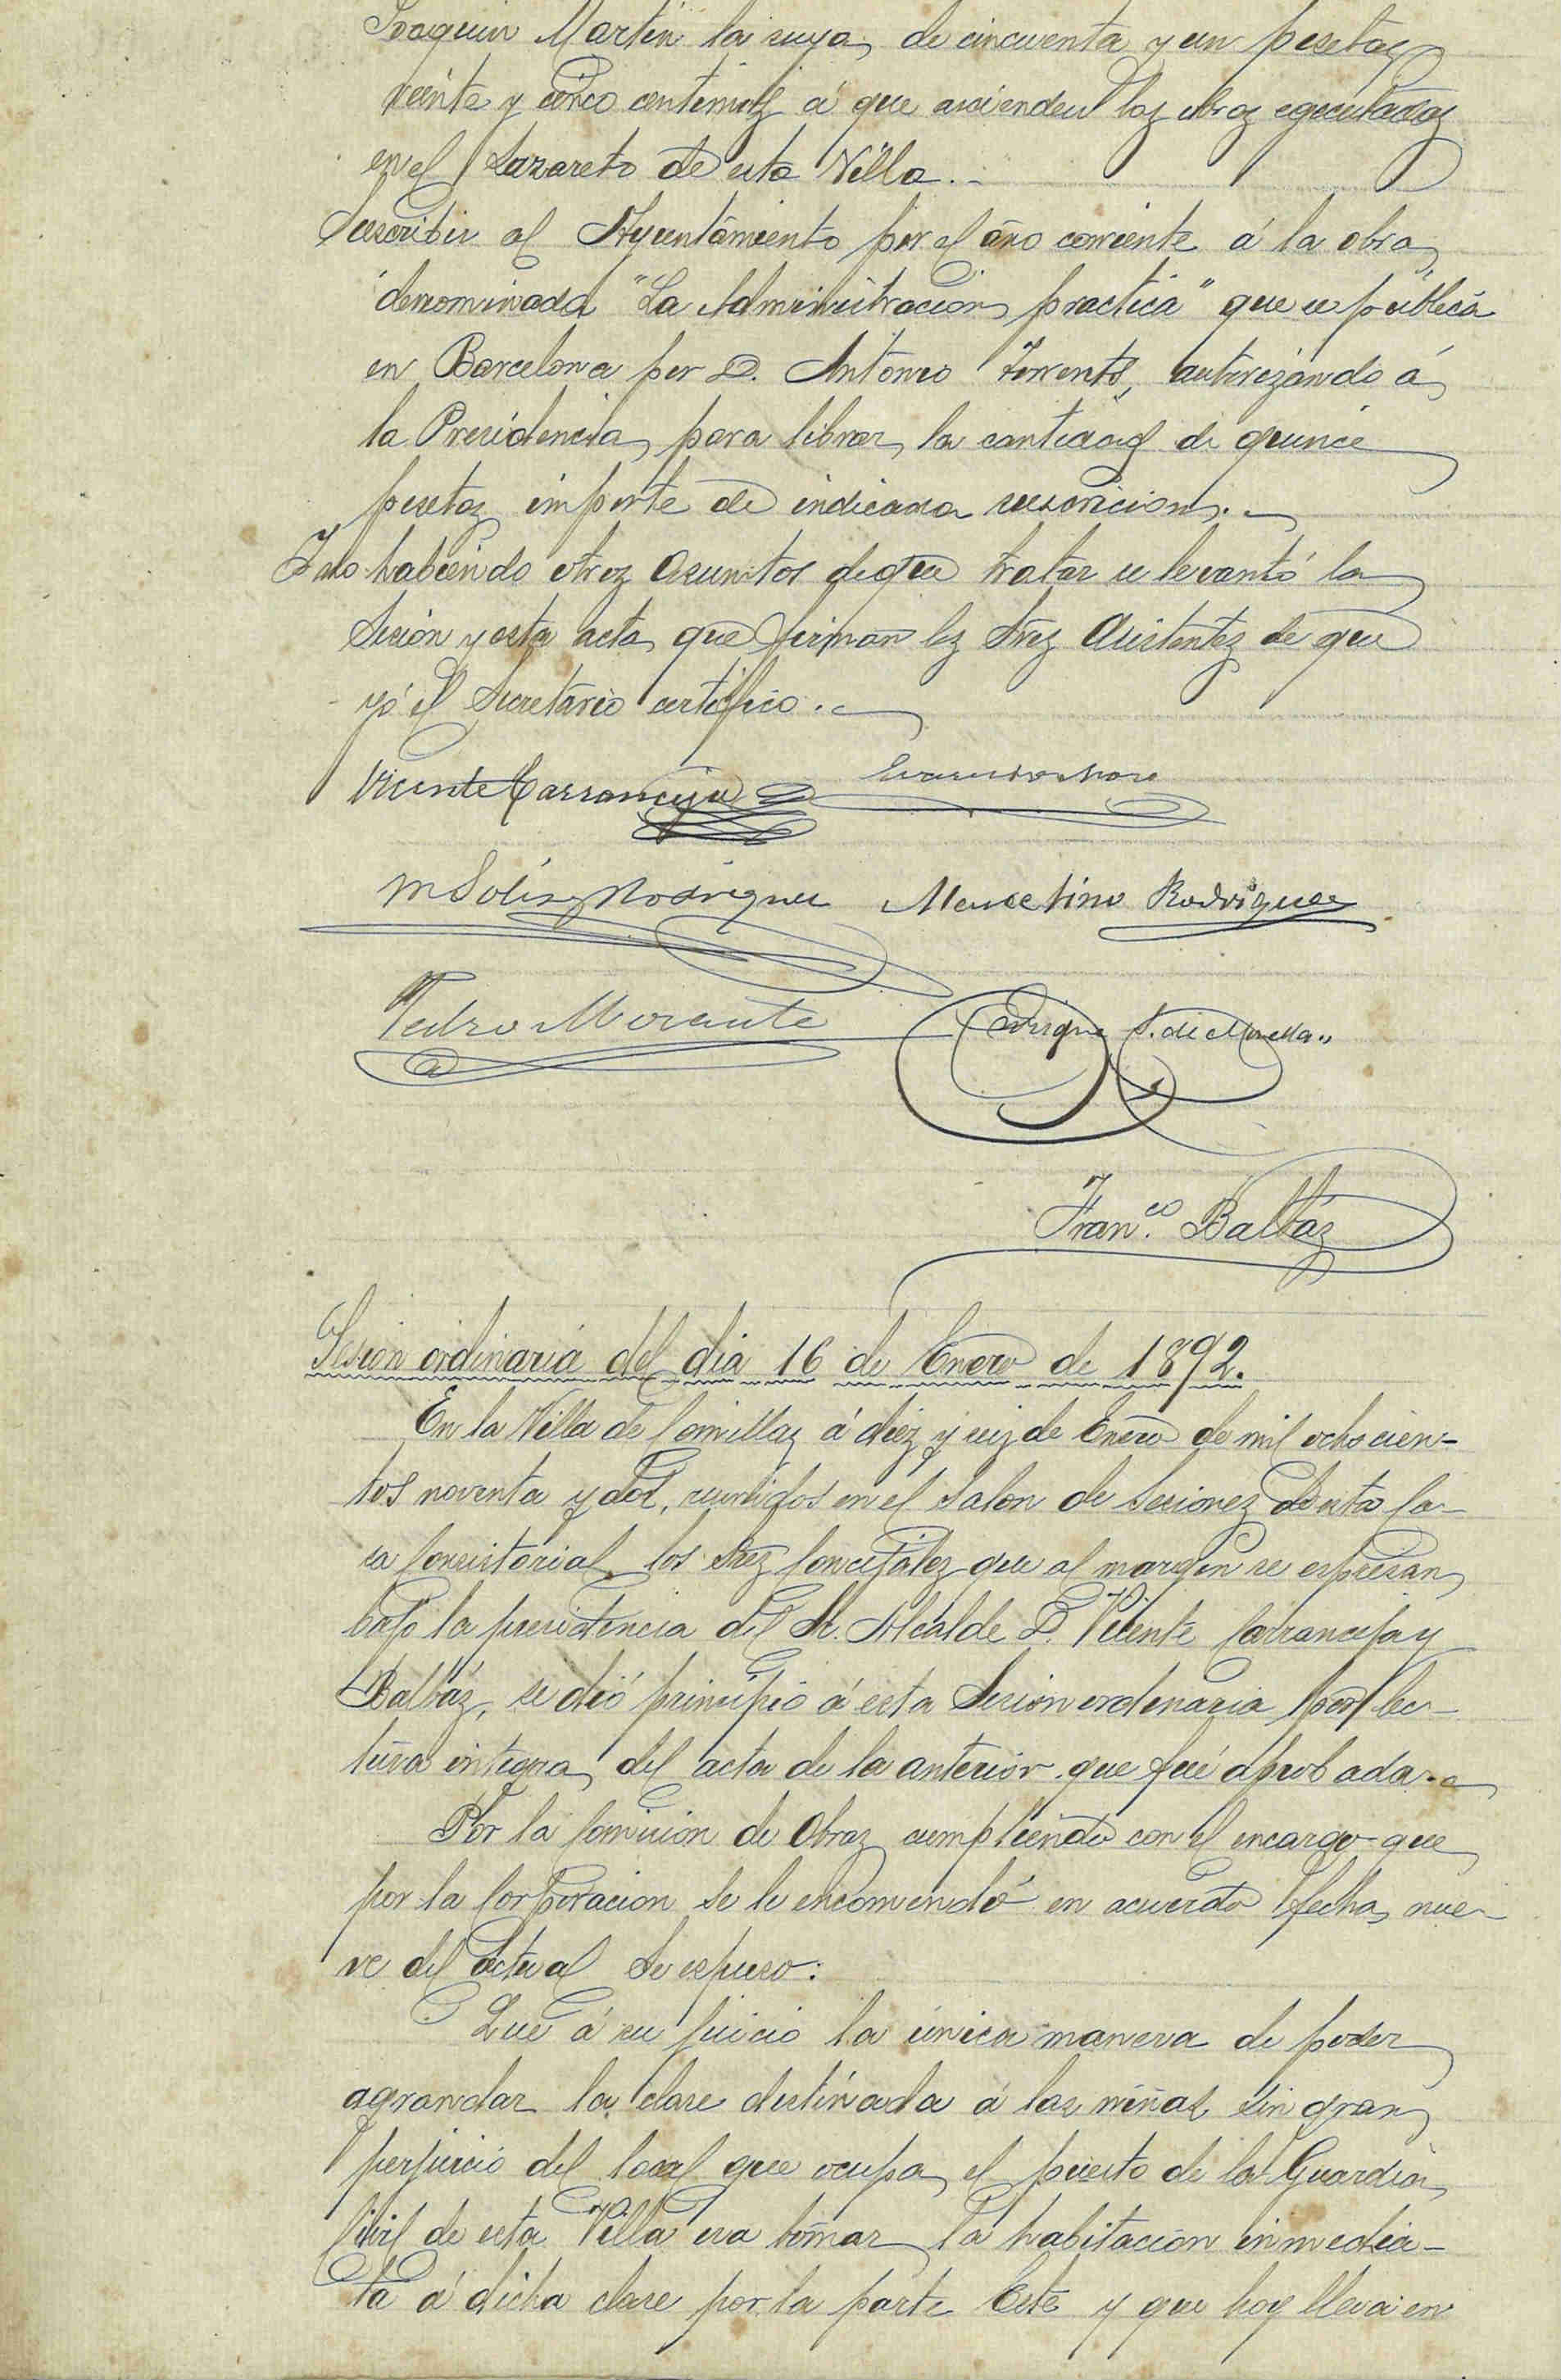 Joaquin Martin la suya, de cincuenta y un pesetas
veinte y cinco centimos á que ascienden las obras egecutadas
en el Lazareto de esta Villa.
Suscribir al Ayuntamiento por el año corriente á la obra
denominada "La Administracion practica" que se publica
en Barcelona por D. Antonio Torrents, autorizando á
la Presidencia para librar la cantidad de quince
pesetas importe de indicada suscricion.
Y no habiendo otros asuntos de que tratar se levantó la
Sesión y esta acta que firman los Sres Asistentes de que
yó el Secretario certifico.
Vicente Carranceja
M Solis Rodriguez Marcelino Rodriguez
Pedro Morante Enrique S. de Movellan
Fran.co Balbás
Sesion ordinaria del dia 16 de Enero de 1892.
En la Villa de Comillas á diez y seis de Enero de mil ochocien-
tos noventa y dos, reunidos en el Salon de Sesiones de esta Ca-
sa Consistorial los Sres Concejales que al margen se espresan
bajo la presidencia del Sr. Alcalde D. Vicente Carranceja y
Balbás, se dió principio á esta Sesion ordinaria por lec-
tura integra del acta de la anterior que fué aprobada.
Por la Comision de Obras cumpliendo con el encargo que
por la Corporacion se le encomendó en acuerdo fecha nue-
ve del actual se espuso:
Que á su juicio la única manera de poder
agrandar la clase destinada á las niñas sin gran
perjuicio del local que ocupa el puesto de la Guardia
Civil de esta Villa era tomar la habitación inmedia-
ta á dicha clase por la parte Este y que hoy lleva en